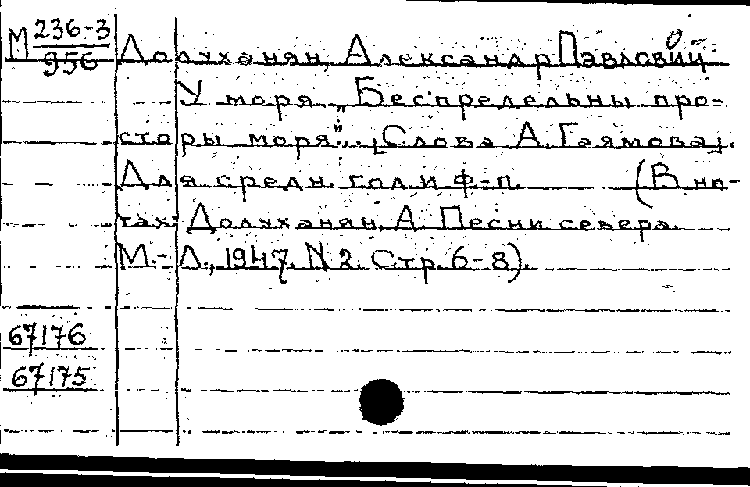 М 236-3
956
Долуханян, Александр Павлович
У моря „Беспредельны про-
сторы моря". [Слова А. Гаямова].
Для средн. гол. и ф-п. (В но-
тах: Долуханян, А. Песни севера.
М.-Л., 1947. N 2. Стр. 6-8).
67176
67175